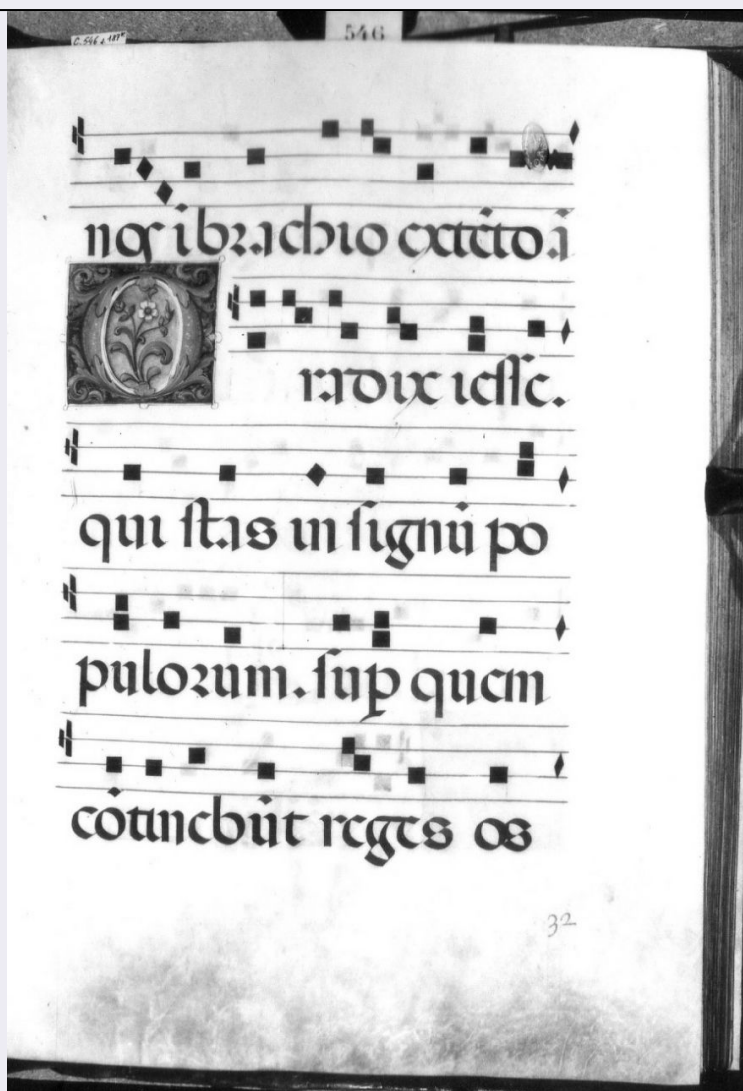 546
C. 546 c. 187v
nos ĩ brachio extẽto ã
O radix iesse.
qui stas in signũ po
pulorum. sup quem
cõtinebũt reges os
32